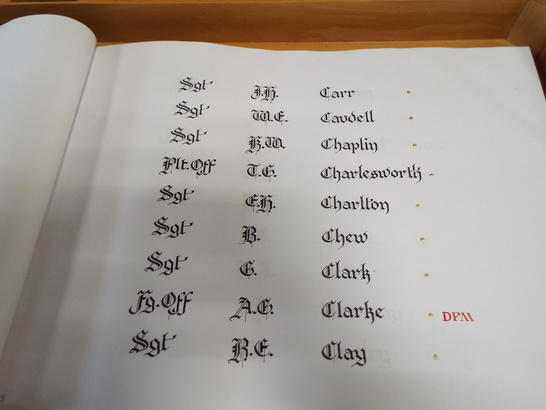 Sgt J.H. Carr
Sgt W.E. Caudell
Sgt K.W. Chaplin
Plt.Off T.G. Charlesworth
Sgt E.H. Charlton
Sgt B. Chew
Sgt G. Clark
Fg.Off A.G. Clarke DFM
Sgt R.E. Clay